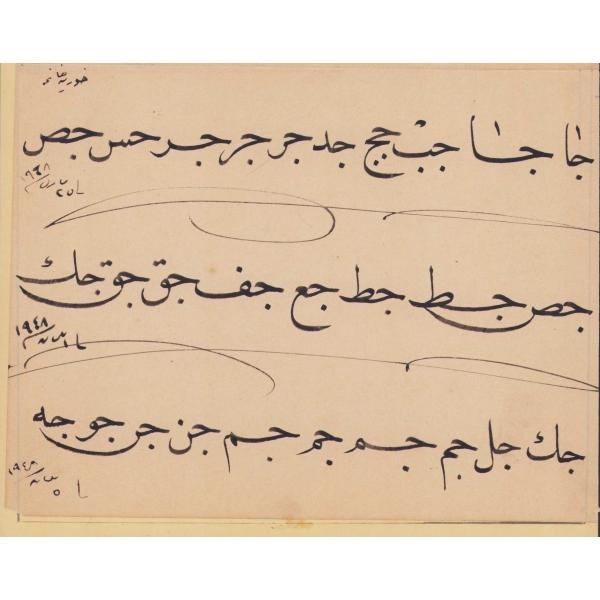 جا جا جب جج جد جر جر جر جس جص
١٩٤٨
جص جط جط جع جف جق جق جك
١٩٤٨
جك جل جم جم جم جم جن جن جو جه
١٩٤٨